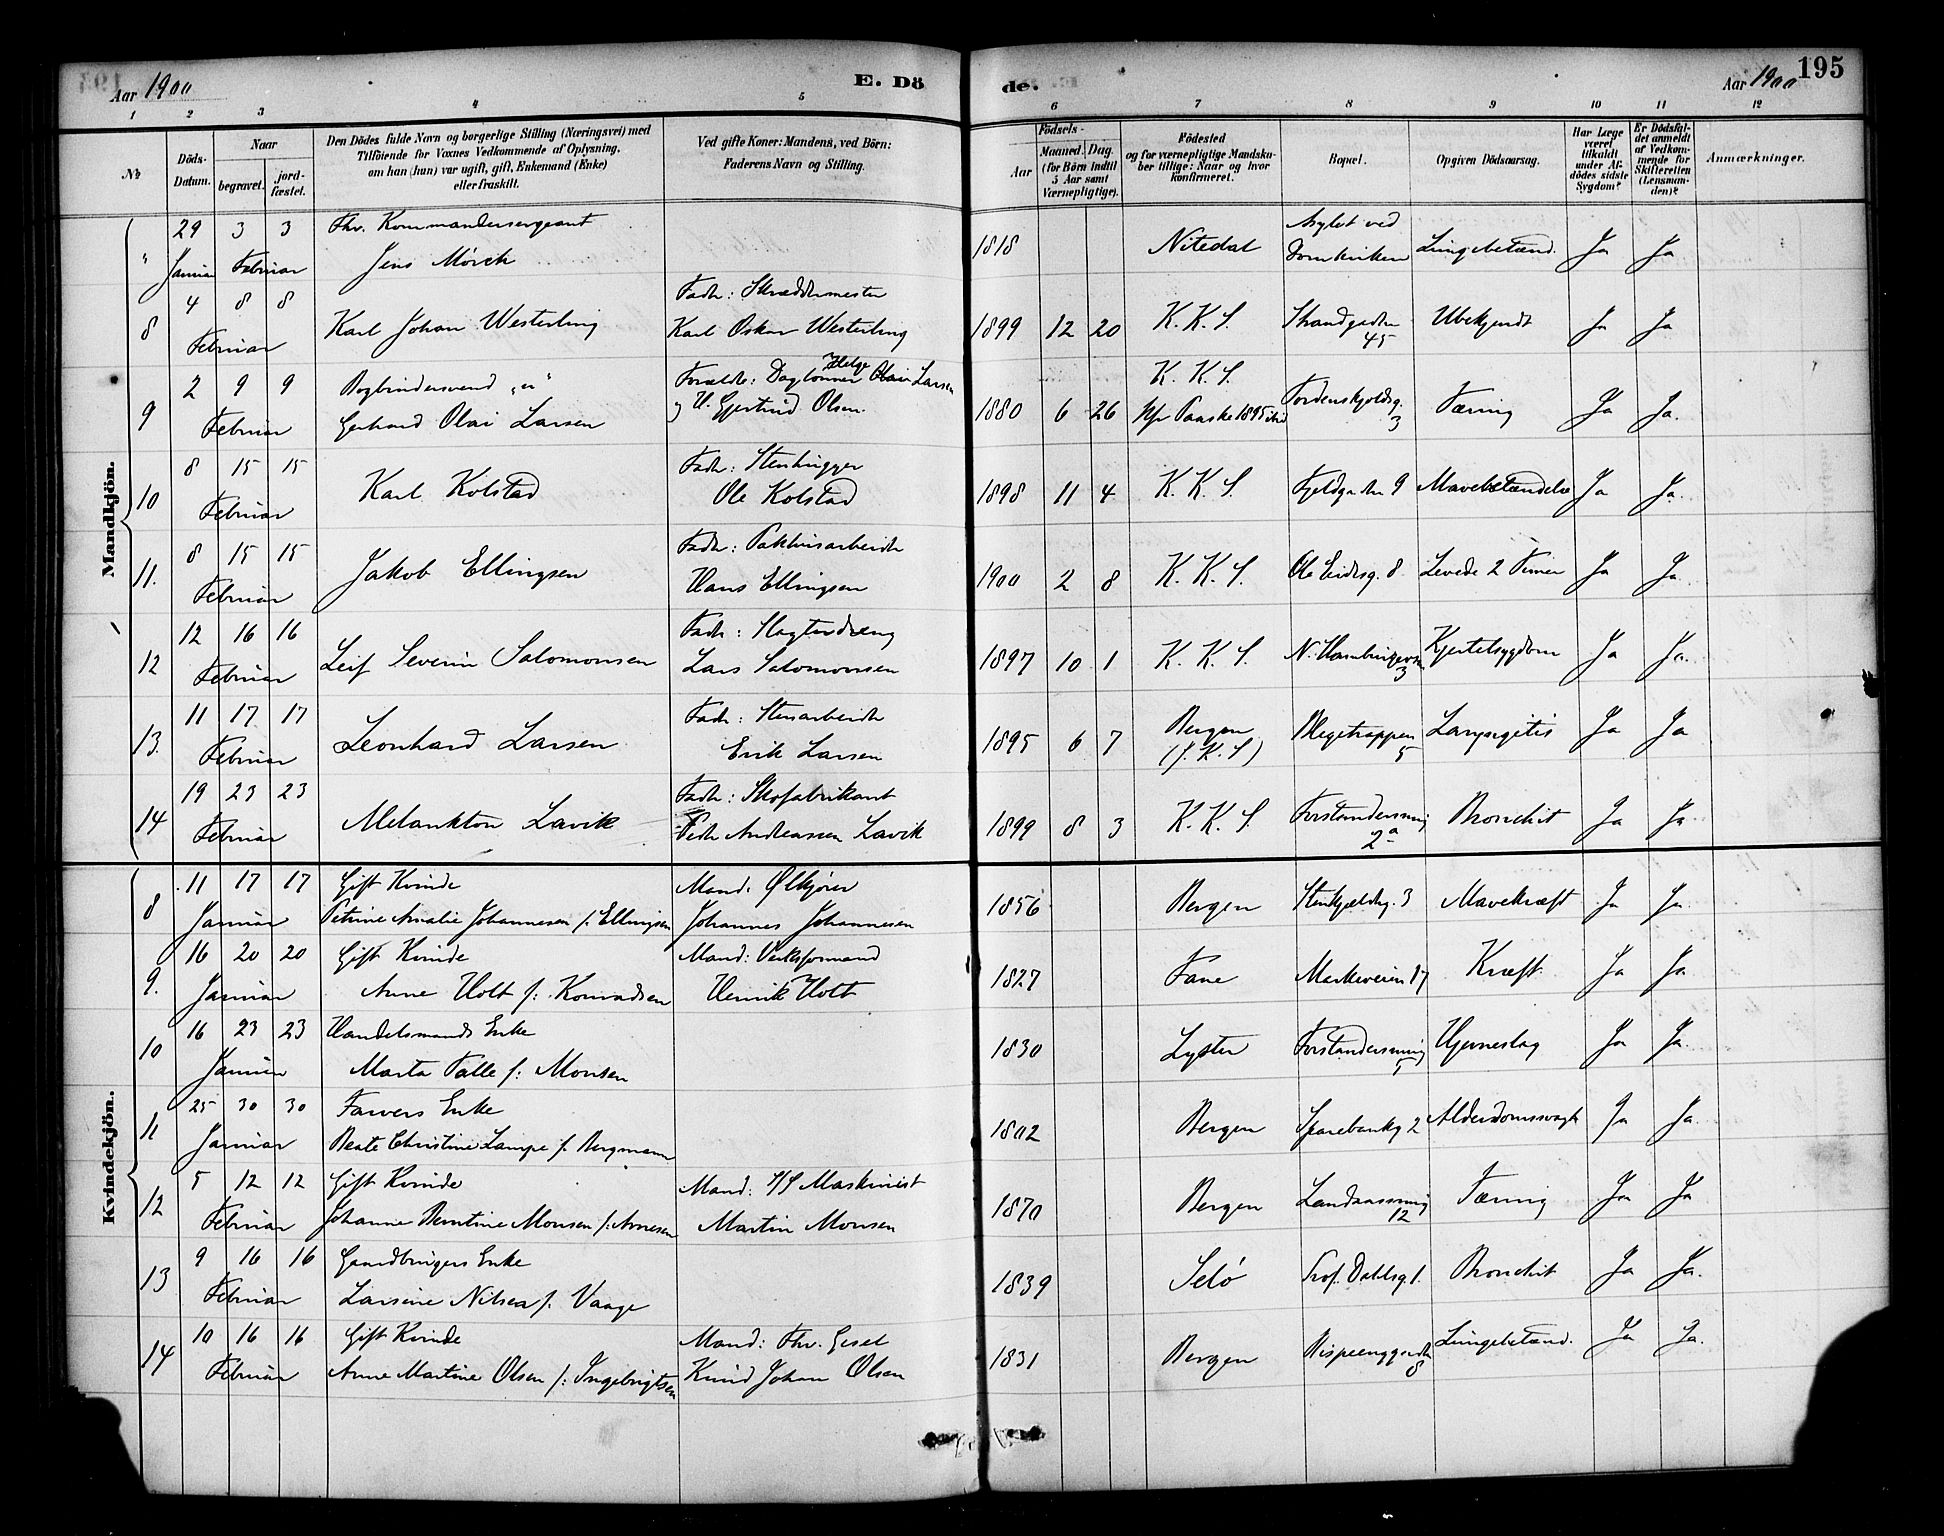 195
Aar 1900
E. Dö
de.
Aar 1900
1 2 3 4 5 6 7 8 9 10 11 12
№
Döds-Datum.
Naar
begravet.
jordfæstet.
Den Dödes fulde Navn og borgerlige Stilling (Næringsvei) med
Tilföiende for Voxnes Vedkommende af Oplysning,
om han (hun) var ugift, gift, Enkemand (Enke)
eller fraskilt.
Ved gifte Koner: Mandens, ved Börn:
Faderens Navn og Stilling.
Födsels-
Aar
Maaned. Dag.
(for Börn indtil
5 Aar samt
Værnepligtige).
Födested
og for værnepligtige Mandskaber tillige: Naar og hvor
konfirmeret.
Bopæl.
Opgiven Dödsaarsag.
Har Læge
været
tilkaldt
under Afdödes sidste
Sygdom?
Er Dödsfaldet anmeldt
af Vedkommende for
Skifteretten
(Lensmanden)?
Anmærkninger.
Mandkjön.
" 29 Januar 3 3 Februar Fhv. Kommandersergeant
Jens Mörch 1818 Nitedal Asylet ved
Domkirken Lungebetænd. Ja Ja
8 4 8 8 Februar Karl Johan Westerling Fader: Skræddermester
Karl Oskar Westerling 1899 12 20 K. K. S. Strandgaden
45 Ubekjendt Ja Ja
9 2 9 9 Februar Bogbindersvend "u"
Gerhard Olai Larsen Forældre: Daglönner Helge Olai Larsen
og H. Gjertrud Olsen. 1880 6 26 K. K. S.
Kfr Paaske 1895 ibid Tordenskjoldsg.
3 Tæring Ja Ja.
10 8 15 15 Februar Karl Kolstad Fader: Stenhugger
Ole Kolstad 1898 11 4 K. K. S. Fjeldgaden 9 Mavebetændelse Ja Ja.
11. 8 15 15 Februar Jakob Ellingsen Fader: Pakhusarbeider
Hans Ellingsen 1900 2 8 K. K. S. Ole Irdesg. 8 Levede 2 Timer Ja Ja.
12 12 16 16 Februar Leif Severin Salomonsen Fader: Slagterdreng
Lars Salomonsen 1897 10 1 K. K. S. N. Hamburgersm
3 Kjertelsygdom Ja Ja.
13. 11 17 17 Februar Leonhard Larsen Fader: Stenarbeider
Erik Larsen 1895 6 7 Bergen
(J. K. S) Blegetrappen
5 Laryngitis Ja Ja
14 19 23 23 Februar Melankton Lavik Fader: Skofabrikant
Peder Andreassen Lavik 1899 8 3 K. K. S. Forstandersmug
2a Bronchit Ja Ja.
Kvindekjön.
8 11 17 17 Januar Gift Kvinde
Petrine Amalie Johannesen f. Ellingsen Mand: Ölkjörer
Johannes Johannesen 1856 Bergen Stenkjeldg. 3 Mavekræft Ja Ja.
9. 16 20 20 Januar Gift Kvinde
Anne Holt f: Konradsen Mand: Verksformand
Henrik Holt 1827 Fane Markeveien 17 Kræft Ja Ja.
10 16 23 23 Januar Handelsmands Enke
Marta Talle f: Monsen 1830 Lyster Forstandersmug
5 Hjerneslag Ja Ja.
11 25 30 30 Januar Farvers Enke
Beate Christine Lampe f. Bergmann 1802 Bergen Sparebankg 2 Alderdomssvagh Ja Ja.
12 5 12 12 Februar Gift Kvinde
Johanne Berntine Monsen f: Arnesen Mand: S/S Maskinist
Martin Monsen 1870 Bergen Landaasmug
12 Tæring Ja Ja
13 9 16 16 Februar Gaardbrugers Enke
Larsine Nilsen f. Vaage 1839 Selö Prof. Dahlsg 1. Bronchit Ja Ja.
14 10 16 16 Februar Gift Kvinde
Anne Martine Olsen f: Ingebrigtsen Mand: Fhv. Gesel
Knud Johan Olsen 1831 Bergen Bispeenggaden
8 Lungebetænd. Ja Ja.